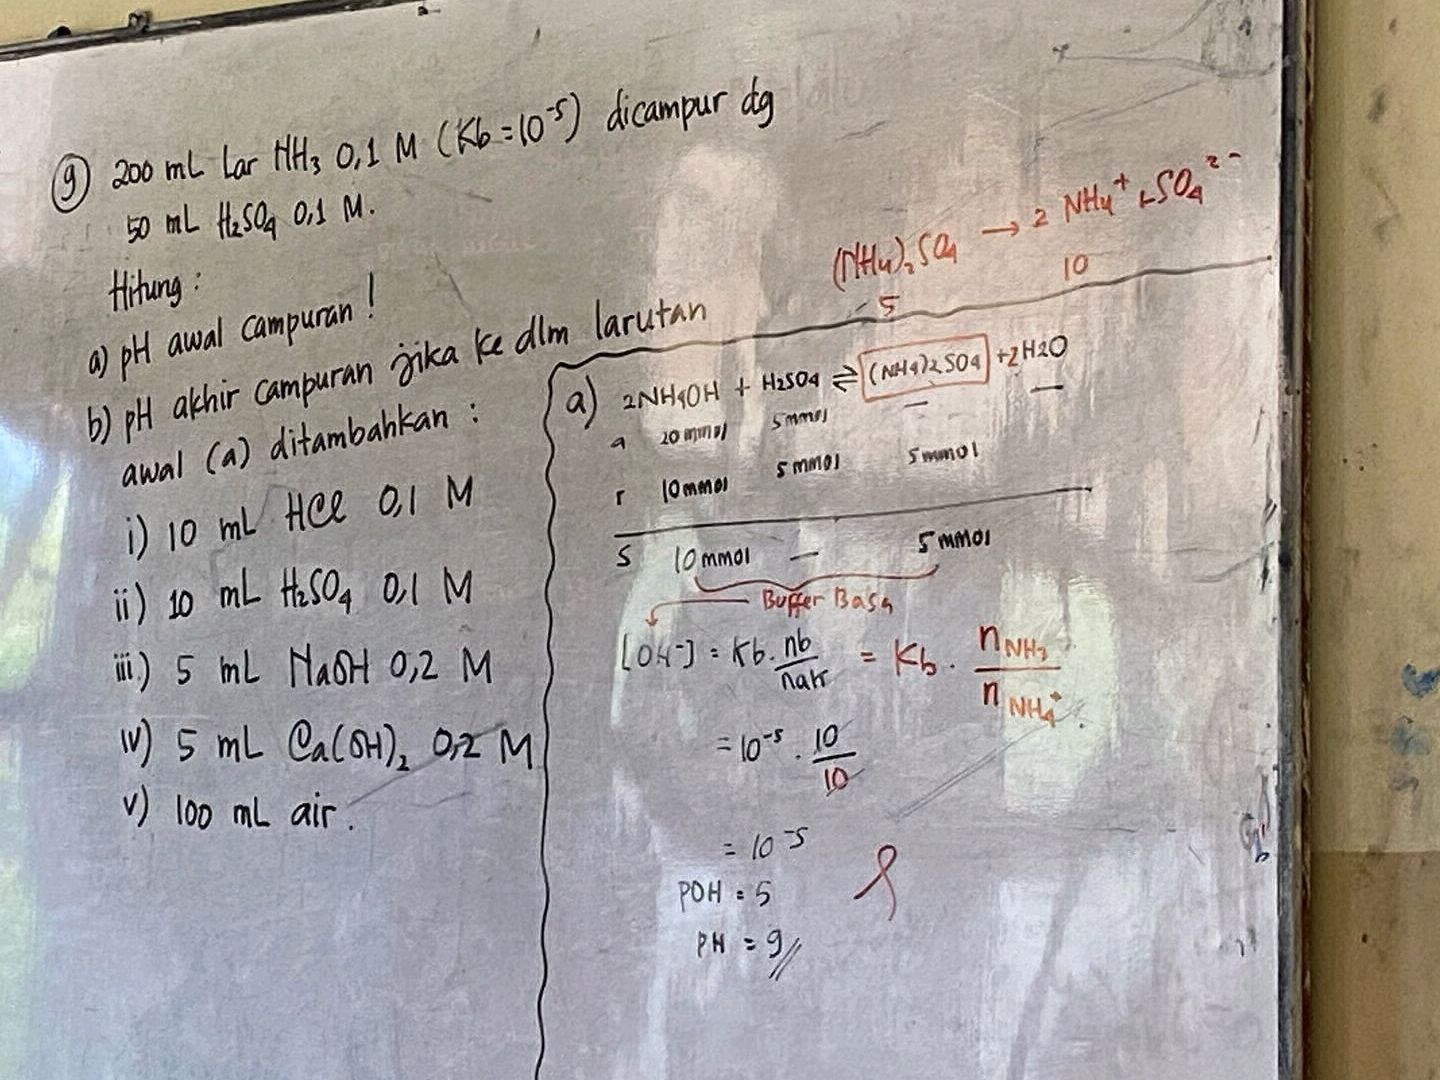 9 200 mL Lar NH₃ 0,1 M (Kb = 10⁻⁵) dicampur dg
50 mL H₂SO₄ 0,1 M.
Hitung :
a) pH awal campuran !
b) pH akhir campuran jika ke dlm larutan
awal (a) ditambahkan :
i) 10 mL HCl 0,1 M
ii) 10 mL H₂SO₄ 0,1 M
iii) 5 mL NaOH 0,2 M
iv) 5 mL Ca(OH)₂ 0,2 M
v) 100 mL air.
(NH₄)₂SO₄ → 2 NH₄⁺ + SO₄²⁻
5 10
a) 2NH₄OH + H₂SO₄ ⇌ (NH₄)₂SO₄ + 2H₂O
a 20 mmol 5 mmol — —
r 10 mmol 5 mmol 5 mmol
s 10 mmol — 5 mmol
Buffer Basa
[OH⁻] = Kb . nb/nak = Kb . n NH₃ / n NH₄⁺
= 10⁻⁵ . 10/10
= 10⁻⁵
POH = 5
PH = 9 //